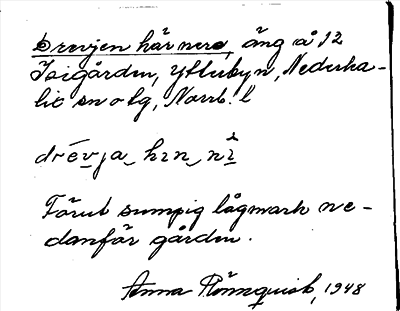 Drevjen här nere, äng å 12
Isigården, Ytterbyn, Nederka-
lix sn o lg, Norrb. l
drévja hn n
Förut sumpig lågmark ne-
danför gården.
Anna Rönnquist, 1948